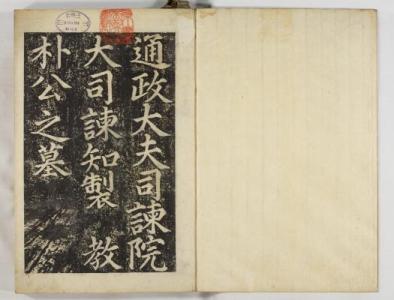 通政大夫司諫院
大司諫知製 教
朴公之墓